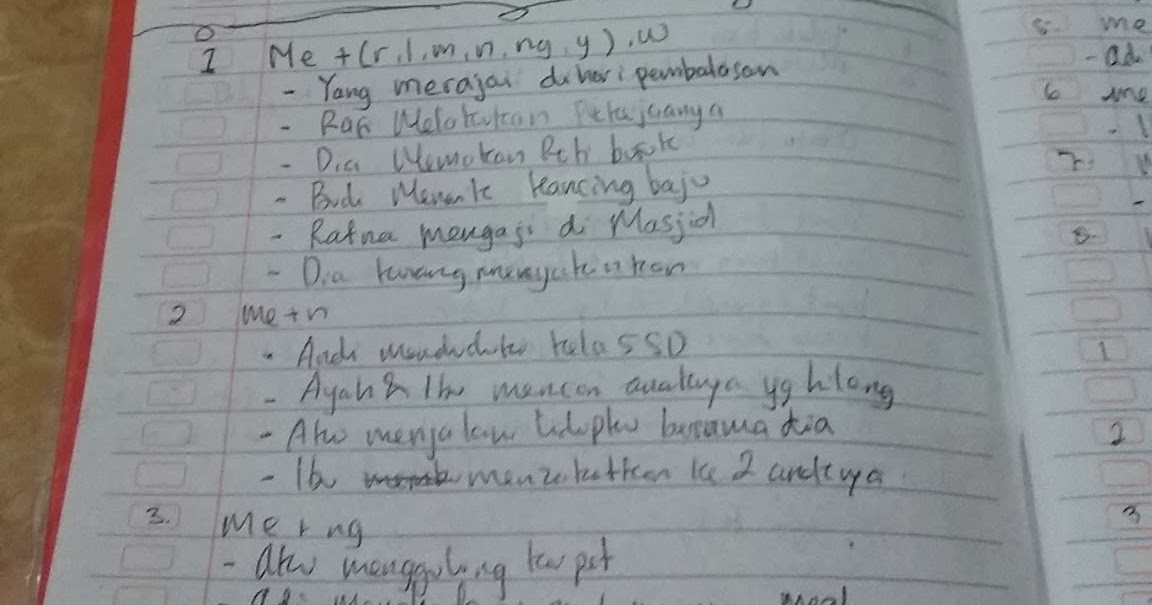 1 Me + (r, l, m, n, ng, y), w
- Yang merajai dihari pembalasan
- Rafi Melakukan Pekerjaanya
- Dia Memakan Roti busuk
- Budi Menarik kancing baju
- Ratna mengaji di Masjid
- Dia kurang menyakinkan
2 Me + n
- Andi menduduki kelas 5 SD
- Ayah & Ibu mencari anaknya yg hilang
- Aku menjalani hidupku bersama dia
- Ibu menzakatkan ke 2 anaknya
3. Me + ng
- Aku menggulung karpet
5. me
- ad
6 me
7.
8.
1
2
3